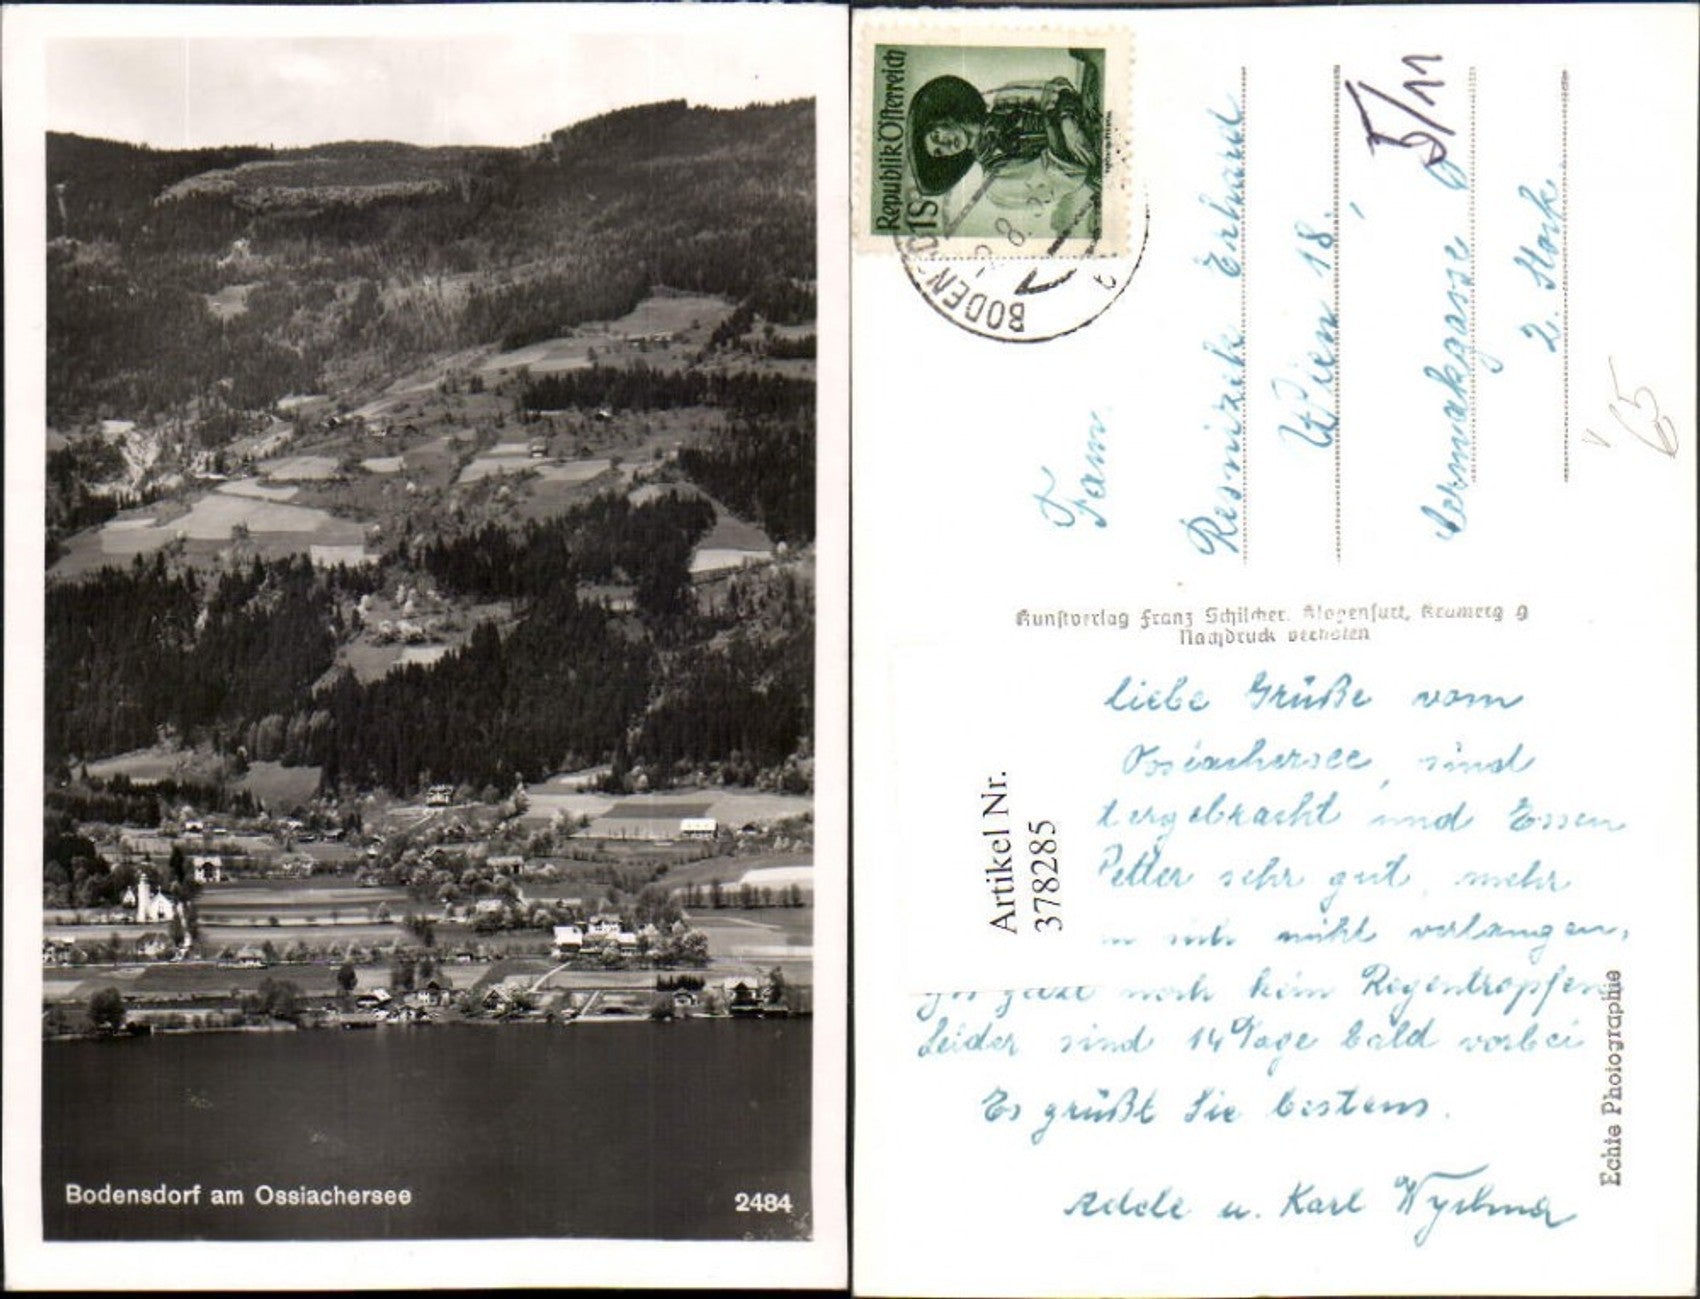 Bodensdorf am Ossiachersee
2484
Republik Österreich
1S
BODEN
8.
5/11
Fam
Resnizek Erhard
Wien 18.
2. Stock
65
Kunstverlag Franz Schilcher. Klagenfurt, Kramerg 9
Nachdruck verboten
Artikel Nr.
378285
liebe Grüße vom
Ossiachersee, sind
tergebracht und Essen
sehr gut, mehr
sich nicht verlangen,
noch kein Regentropfen
Leider sind 14 Tage bald vorbei
Es grüßt Sie bestens.
Adele u. Karl
Echte Photographie